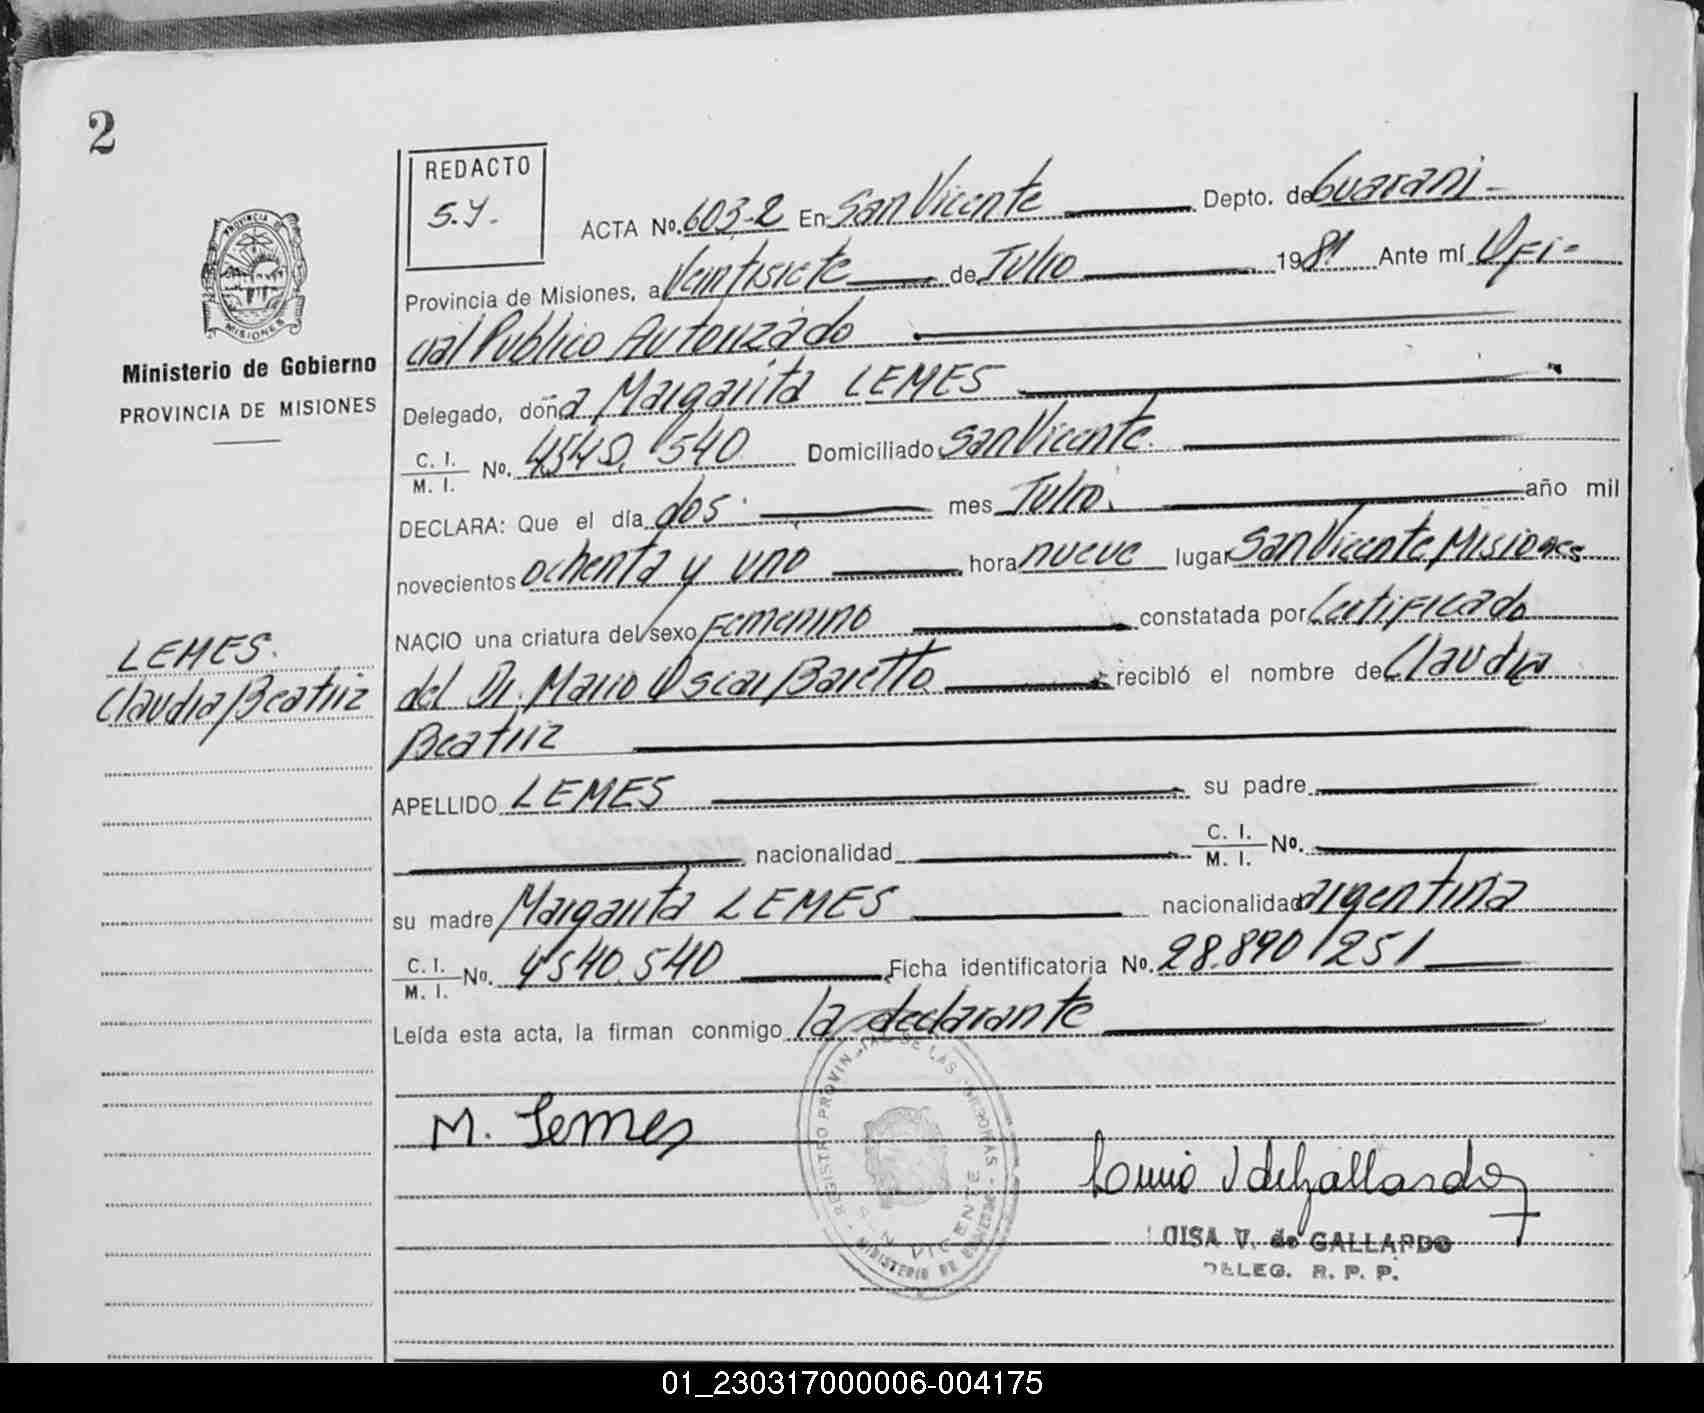 2
REDACTO
S.Y.
ACTA No. 603-2 En San Vicente Depto. de Guarani-
Provincia de Misiones, a Veintisiete de Julio 1981 Ante mí Ofi-
cial Publico Autorizado
Delegado, doña Margarita LEMES
C. I.
M. I. No. 4540.540 Domiciliado San Vicente.
DECLARA: Que el día dos. mes Julio. año mil
novecientos ochenta y uno hora nueve lugar San Vicente Misiones
NACIO una criatura del sexo Femenino constatada por Certificado
del Dr. Mario Oscar Baretto recibló el nombre de Claudia
Beatriz
APELLIDO LEMES su padre
nacionalidad C. I.
M. I. No.
su madre Margarita LEMES nacionalidad argentina
C. I.
M. I. No. 4540.540 Ficha identificatoria No. 28.890.251
Leída esta acta, la firman conmigo la declarante
PROVINCIA DE
MISIONES
Ministerio de Gobierno
PROVINCIA DE MISIONES
LEMES.
Claudia Beatriz
M. Lemes
REGISTRO PROVINCIAL DE LAS PERSONAS
SAN VICENTE
MINISTERIO DE
LUISA V. de GALLARDO
DELEG. R. P. P.
01_230317000006-004175